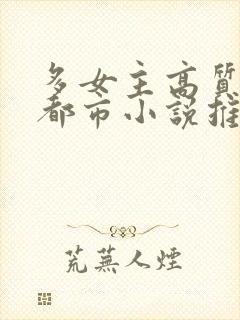 多女主高質
都市小說推
荒蕪人煙